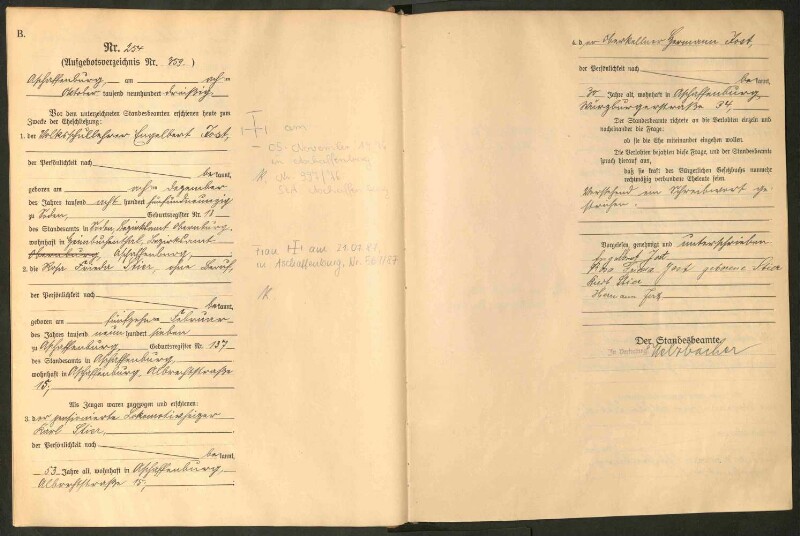 B.
Nr. 254
(Aufgebotsverzeichnis Nr. 359.)
Aschaffenburg, am acht-
Oktober tausend neunhundert dreißig.
Vor dem unterzeichneten Standesbeamten erschienen heute zum
Zwecke der Eheschließung:
1. der Volksschullehrer Engelbert Jost,
der Persönlichkeit nach
bekannt,
geboren am acht Dezember
des Jahres tausend acht hundert fünfundneunzig
zu Soden, Geburtsregister Nr. 18
des Standesamts in Soden, Bezirksamt Obernburg,
wohnhaft in Heimbuchenthal, Bezirksamt
Obernburg Aschaffenburg,
2. die Rosa Frieda Stier, ohne Beruf,
der Persönlichkeit nach
bekannt,
geboren am fünfzehn Februar
des Jahres tausend neun hundert sieben
zu Aschaffenburg, Geburtsregister Nr. 137
des Standesamts in Aschaffenburg
wohnhaft in Aschaffenburg, Albrechtstraße
15,
Als Zeugen waren zugezogen und erschienen:
3. der pensionierte Lokomotivheizer
Karl Stier,
der Persönlichkeit nach
bekannt,
53 Jahre alt, wohnhaft in Aschaffenburg,
Albrechtstraße 15,
am
05. November
in Aschaffenburg
Nr.
Frau am
in Aschaffenburg, Nr.
4. der Oberkellner Hermann Jost,
der Persönlichkeit nach
bekannt,
30 Jahre alt, wohnhaft in Aschaffenburg
Würzburgerstraße 94
Der Standesbeamte richtete an die Verlobten einzeln und
nacheinander die Frage:
ob sie die Ehe miteinander eingehen wollen.
Die Verlobten bejahten diese Frage, und der Standesbeamte
sprach hierauf aus,
daß sie kraft des Bürgerlichen Gesetzbuchs nunmehr
rechtmäßig verbundene Eheleute seien.
Vorstehend ein Schreibwort ge-
strichen.
Vorgelesen, genehmigt und unterschrieben
Engelbert Jost
Rosa Frieda Jost geborene Stier
Karl Stier
Hermann Jost
Der Standesbeamte.
In Vertretung: